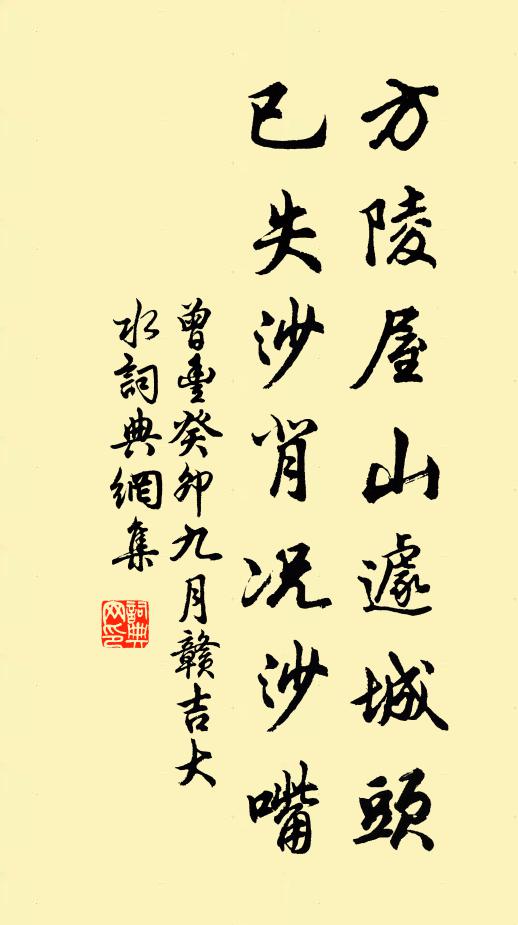 方陵屋山遽城頭
已失沙背况沙嘴
曾豐癸卯九月赣吉大
水詞典網集
詞典网印